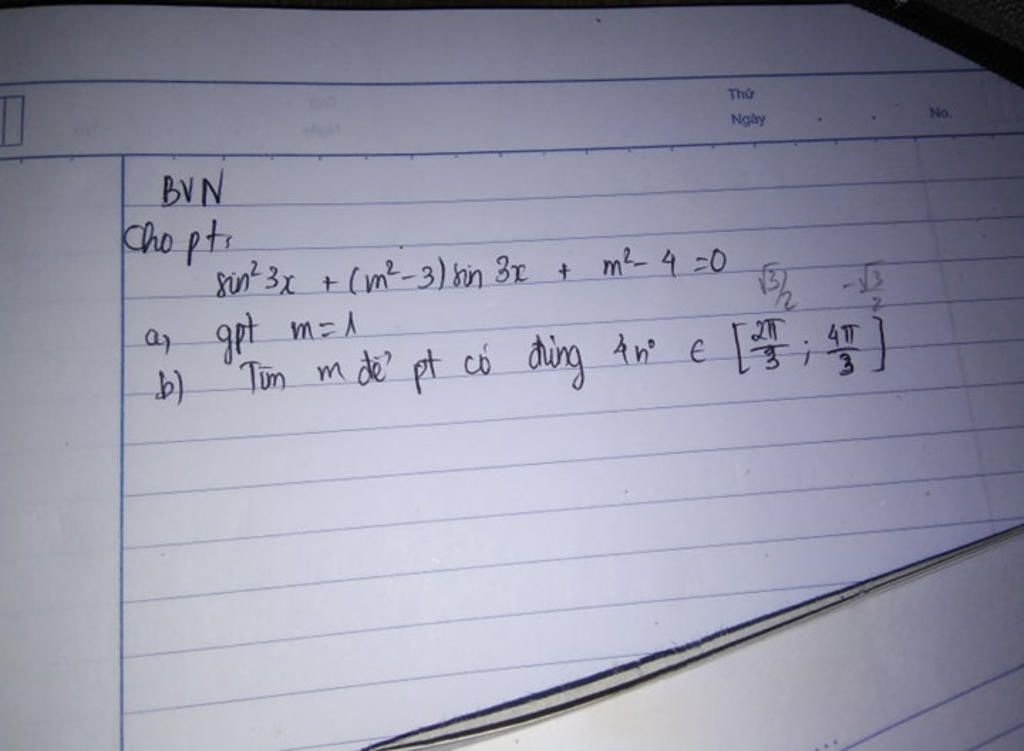 Thứ
Ngày . . No.
BVN
Cho pt:
sin² 3x + (m² - 3) sin 3x + m² - 4 = 0
√3/2 -√3/2
a, gpt m = 1
b) Tìm m để pt có đúng 4 n⁰ ∈ [2π/3 ; 4π/3]